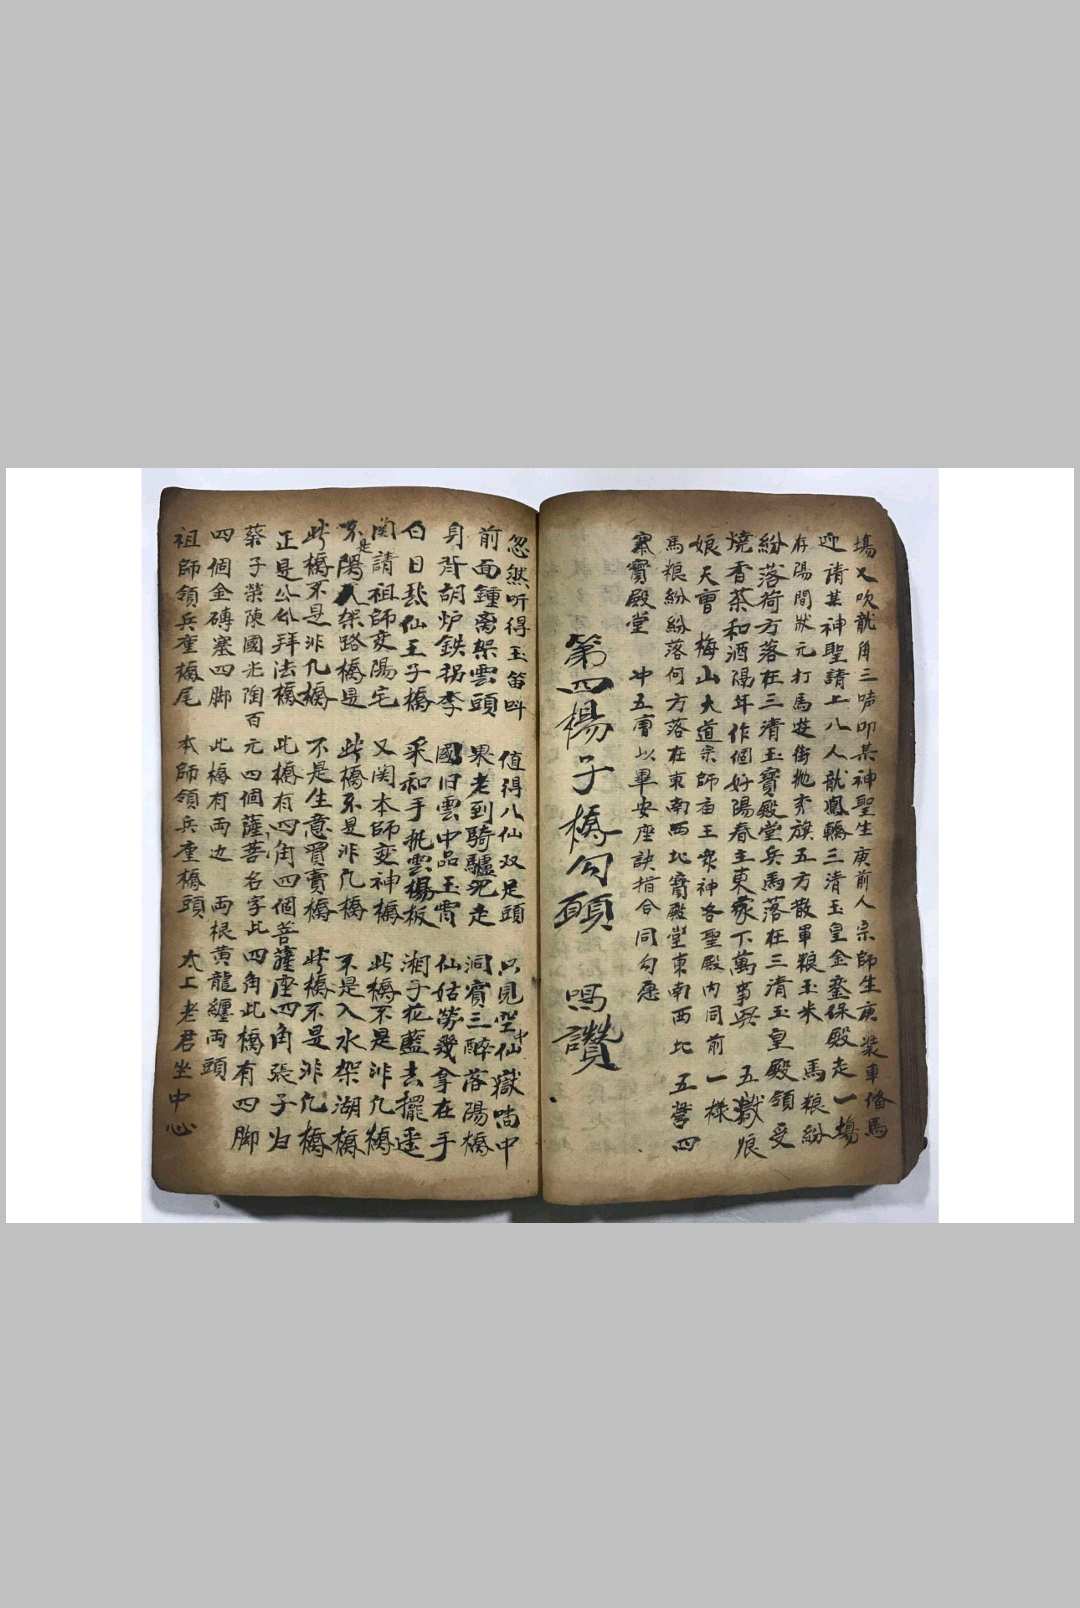 塲又吹龍角三声叩某神聖生庚前人宗師生庚裝車俻馬
迎請某神聖請上八人龍鳳轎三清玉皇金鑾保殿走一塲
存陽間狀元打馬遊街抛旗五方散軍粮玉米 馬粮紛
紛落荷方落在三清玉寳殿堂兵馬落在三清玉皇殿領受
燒香茶和酒陽年作個好陽春主東家下萬事興 五嶽
娘天曹 梅山大道宗師庙王衆神各聖殿内同前一樣
馬粮紛紛落何方落在東南西北寳殿堂東南西北 五營四
寨寳殿堂 冲五庙以畢安座訣指合同勾愿
第四楊子橋勾頭 嗎讚
忽然听得玉笛叫 值得八仙双足頭 只見空中仙嶽喘中
前面鍾离架雲頭 果老到騎驢児走 洞賓三醉落陽橋
身背胡炉鉄拐李 國旧雲中品玉霄 仙姑勞幾拿在手
白日仙王子橋 采和手雲楊板 湘子花藍去擺遥
関請祖師变陽宅 又関本師変神橋 此橋不是非凢橋
不是陽人架路橋是 此橋不是非凢橋 不是入水架湖橋
此橋不是非凢橋 不是生意買賣橋 此橋不是非凢橋
正是公公拜法橋 此橋有四角四個菩薩座四角張子归
蔡子榮陳國光陶百元四個薩菩名字此四角此橋有四脚
四個金磚塞四脚 此橋有両边 両根黄龍纏両頭
祖師領兵奎橋尾 本師領兵奎橋頭 太上老君坐中心